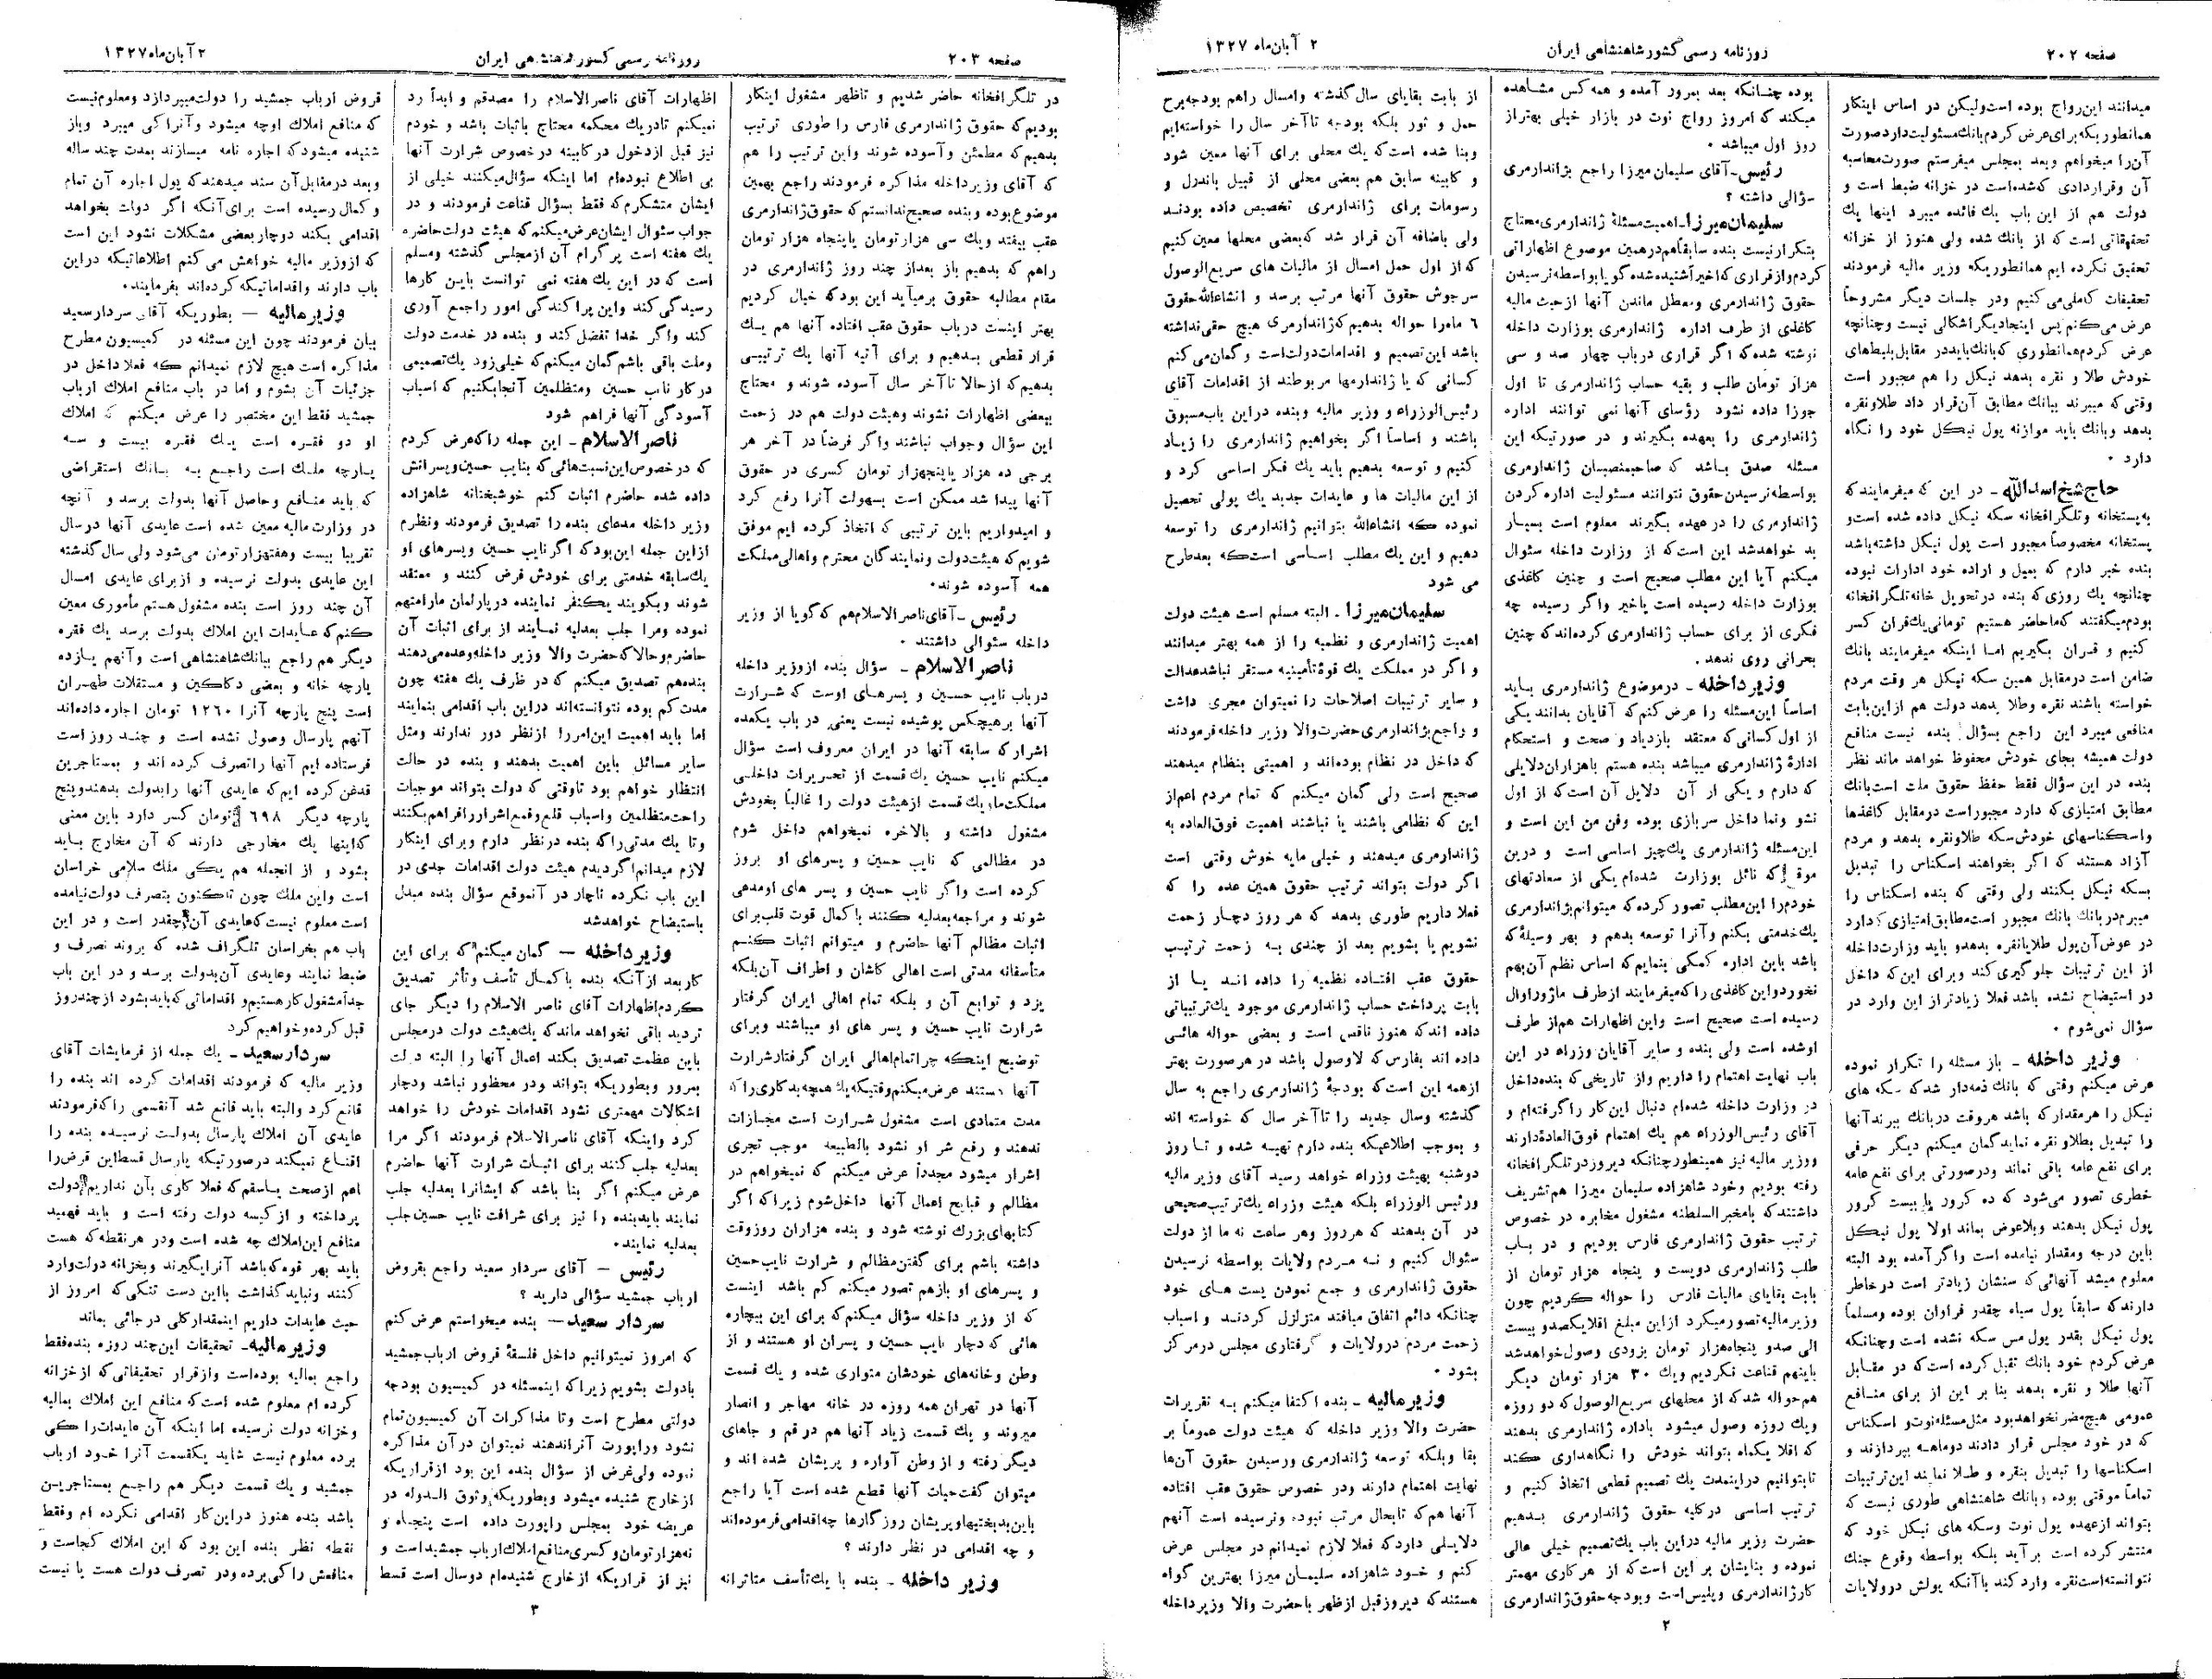 صفحه ۲۰۲
روزنامه رسمی کشور شاهنشاهی ایران
۲ آبان ماه ۱۳۲۷
میدانند این رواج بوده است ولیکن در اساس اینکار
همانطوریکه برای عرض کردم بانك مسئولیت دارد صورت
آن را میخواهم وبعد بمجلس میفرستم صورت محاسبه
آن وقراردادی که شده است در خزانه ضبط است و
دولت هم از این باب یك فائده میبرد اینها یك
تحقیقاتی است که از بانك شده ولی هنوز از خزانه
تحقیق نکرده ایم همانطوریکه وزیر مالیه فرمودند
تحقیقات کاملی می کنیم ودر جلسات دیگر مشروحاً
عرض می کنم پس اینجا دیگر اشکالی نیست وچنانچه
عرض کردم همانطوری که بانك باید در مقابل بلیط های
خودش طلا و نقره بدهد نیکل را هم مجبور است
وقتی که میبرند ببانك مطابق آن قرار داد طلا ونقره
بدهد وبانك باید موازنه پول نیکل خود را نگاه
دارد .
حاج شیخ اسدالله ـ در این که میفرمایند که
به پستخانه وتلگرافخانه سکه نیکل داده شده است و
پستخانه مخصوصاً مجبور است پول نیکل داشته باشد
بنده خبر دارم که بمیل و اراده خود ادارات نبوده
چنانچه یك روزی که بنده در تحویل خانه تلگرافخانه
بودم میگفتند که ما حاضر هستیم تومانی یك قران کسر
کنیم و قران بگیریم اما اینکه میفرمایند بانك
ضامن است در مقابل همین سکه نیکل هر وقت مردم
خواسته باشند نقره وطلا بدهد دولت هم از این بابت
منافعی میبرد این راجع بسؤال بنده نیست منافع
دولت همیشه بجای خودش محفوظ خواهد ماند نظر
بنده در این سؤال فقط حفظ حقوق ملت است بانك
مطابق امتیازی که دارد مجبور است در مقابل کاغذها
واسکناسهای خودش سکه طلا ونقره بدهد و مردم
آزاد هستند که اگر بخواهند اسکناس را تبدیل
بسکه نیکل بکنند ولی وقتی که بنده اسکناس را
میبرم در بانك بانك مجبور است مطابق امتیازی که دارد
در عوض آن پول طلا یا نقره بدهد و باید وزارت داخله
از این ترتیبات جلوگیری کند وبرای این که داخل
در استیضاح نشده باشد فعلا زیادتر از این وارد در
سؤال نمی شوم .
وزیر داخله ـ باز مسئله را تکرار نموده
عرض میکنم وقتی که بانك ذمه دار شد که سکه های
نیکل را هر مقدار که باشد هر وقت در بانك ببرند آنها
را تبدیل بطلا و نقره نماید گمان میکنم دیگر حرفی
برای نفع عامه باقی نماند ودر صورتی برای نفع عامه
خطری تصور می شود که ده کرور یا بیست کرور
پول نیکل بدهند وبلا عوض بماند اولا پول نیکل
باین درجه ومقدار نیامده است واگر آمده بود البته
معلوم میشد آنهائی که سنشان زیادتر است در خاطر
دارند که سابقاً پول سیاه چقدر فراوان بوده ومسلماً
پول نیکل بقدر پول مس سکه نشده است وچنانکه
عرض کردم خود بانك تقبل کرده است که در مقابل
آنها طلا و نقره بدهد بنا بر این از برای منافع
عمومی هیچ مضر نخواهد بود مثل مسئله نوت و اسکناس
که در خود مجلس قرار دادند دوماهه بپردازند و
اسکناسها را تبدیل بنقره و طلا نمایند این ترتیبات
تماماً موقتی بوده و بانك شاهنشاهی طوری نیست که
بتواند از عهده پول نوت وسکه های نیکل خود که
منتشر کرده است بر آید بلکه بواسطه وقوع جنك
نتوانسته است نقره وارد کند با آنکه پولش در ولایات
بوده چنانکه بعد بمرور آمده و همه کس مشاهده
میکند که امروز رواج نوت در بازار خیلی بهتر از
روز اول میباشد .
رئیس ـ آقای سلیمان میرزا راجع بژاندارمری
سؤالی داشته ؟
سلیمان میرزا ـ اهمیت مسئلهٔ ژاندارمری محتاج
بتکرار نیست بنده سابقاً هم در همین موضوع اظهاراتی
کردم واز قراری که اخیراً شنیده شده گویا بواسطه نرسیدن
حقوق ژاندارمری ومعطل ماندن آنها از حیث مالیه
کاغذی از طرف اداره ژاندارمری بوزارت داخله
نوشته شده که اگر قراری در باب چهار صد و سی
هزار تومان طلب و بقیه حساب ژاندارمری تا اول
جوزا داده نشود رؤسای آنها نمی توانند اداره
ژاندارمری را بعهده بگیرند و در صورتیکه این
مسئله صدق باشد که صاحبمنصبان ژاندارمری
بواسطه نرسیدن حقوق نتوانند مسئولیت اداره کردن
ژاندارمری را در عهده بگیرند معلوم است بسیار
بد خواهد شد این است که از وزارت داخله سئوال
میکنم آیا این مطلب صحیح است و چنین کاغذی
بوزارت داخله رسیده است یا خیر واگر رسیده چه
فکری از برای حساب ژاندارمری کرده اند که چنین
بحرانی روی ندهد .
وزیر داخله ـ در موضوع ژاندارمری باید
اساساً این مسئله را عرض کنم که آقایان بدانند یکی
از اول کسانی که معتقد بازدیاد و صحت و استحکام
ادارهٔ ژاندارمری میباشد بنده هستم با هزاران دلایلی
که دارم و یکی از آن دلایل آن است که از اول
نشو ونما داخل سربازی بوده وفن من این است و
این مسئله ژاندارمری یك چیز اساسی است و درین
موقع که نائل بوزارت شده ام یکی از سعادتهای
خودم را این مطلب تصور کرده که میتوانم بژاندارمری
یك خدمتی بکنم وآنرا توسعه بدهم و بهر وسیلهٔ که
باشد باین اداره کمکی بنمایم که اساس نظم آن بهم
نخورد و این کاغذی را که میفرمایند از طرف ماژور اوال
رسیده است صحیح است واین اظهارات هم از طرف
او شده است ولی بنده و سایر آقایان وزراء در این
باب نهایت اهتمام را داریم واز تاریخی که بنده داخل
در وزارت داخله شده ام دنبال این کار را گرفته ام و
آقای رئیس الوزراء هم یك اهتمام فوق العاده دارند
ووزیر مالیه نیز همینطور چنانکه دیروز در تلگرافخانه
رفته بودیم وخود شاهزاده سلیمان میرزا هم تشریف
داشتند که با مخبر السلطنه مشغول مخابره در خصوص
ترتیب حقوق ژاندارمری فارس بودیم و در باب
طلب ژاندارمری دویست و پنجاه هزار تومان از
بابت بقایای مالیات فارس را حواله کردیم چون
وزیر مالیه تصور میکرد از این مبلغ اقلا یکصدو بیست
الی صدو پنجاه هزار تومان بزودی وصول خواهد شد
باینهم قناعت نکردیم ویك ۳۰ هزار تومان دیگر
هم حواله شد که از محلهای سریع الوصول که دو روزه
ویك روزه وصول میشود باداره ژاندارمری بدهند
که اقلا یکماه بتواند خودش را نگاهداری کند
تا بتوانیم در اینمدت یك تصمیم قطعی اتخاذ کنیم و
ترتیب اساسی در کلیه حقوق ژاندارمری بدهیم
حضرت وزیر مالیه در این باب یك تصمیم خیلی عالی
نموده و بنایشان بر این است که از هر کاری مهمتر
کار ژاندارمری وپلیس است و بودجه حقوق ژاندارمری
از بابت بقایای سال گذشته وامسال راهم بودجه برج
حمل و ثور بلکه بودجه تا آخر سال را خواسته ایم
وبنا شده است که یك محلی برای آنها معین شود
و کابینه سابق هم بعضی محلی از قبیل باندرل و
رسومات برای ژاندارمری تخصیص داده بودند
ولی باضافه آن قرار شد که بعضی محلها معین کنیم
که از اول حمل امسال از مالیات های سریع الوصول
سرجوش حقوق آنها مرتب برسد و انشاءالله حقوق
٦ ماه را حواله بدهیم که ژاندارمری هیچ حقی نداشته
باشد این تصمیم و اقدامات دولت است و گمان می کنم
کسانی که با ژاندارمها مربوطند از اقدامات آقای
رئیس الوزراء و وزیر مالیه وبنده در این باب مسبوق
باشند و اساساً اگر بخواهیم ژاندارمری را زیاد
کنیم و توسعه بدهیم باید یك فکر اساسی کرد و
از این مالیات ها و عایدات جدید یك پولی تحصیل
نموده که انشاءالله بتوانیم ژاندارمری را توسعه
دهیم و این یك مطلب اساسی است که بعد طرح
می شود
سلیمان میرزا ـ البته مسلم است هیئت دولت
اهمیت ژاندارمری و نظمیه را از همه بهتر میدانند
و اگر در مملکت یك قوهٔ تأمینیه مستقر نباشد عدالت
و سایر ترتیبات اصلاحات را نمیتوان مجری داشت
و راجع بژاندارمری حضرت والا وزیر داخله فرمودند
که داخل در نظام بوده اند و اهمیتی بنظام میدهند
صحیح است ولی گمان میکنم که تمام مردم اعم از
این که نظامی باشند یا نباشند اهمیت فوق العاده به
ژاندارمری میدهند و خیلی مایه خوش وقتی است
اگر دولت بتواند ترتیب حقوق همین عده را که
فعلا داریم طوری بدهد که هر روز دچار زحمت
نشویم یا بشویم بعد از چندی به زحمت ترتیب
حقوق عقب افتاده نظمیه را داده اند یا از
بابت پرداخت حساب ژاندارمری موجود یك ترتیباتی
داده اند که هنوز ناقص است و بعضی حواله هائی
داده اند بفارس که لا وصول باشد در هر صورت بهتر
از همه این است که بودجهٔ ژاندارمری راجع به سال
گذشته وسال جدید را تا آخر سال که خواسته اند
و بموجب اطلاعیکه بنده دارم تهیه شده و تا روز
دوشنبه بهیئت وزراء خواهد رسید آقای وزیر مالیه
ورئیس الوزراء بلکه هیئت وزراء یك ترتیب صحیحی
در آن بدهند که هر روز وهر ساعت نه ما از دولت
سئوال کنیم و نه مردم ولایات بواسطه نرسیدن
حقوق ژاندارمری و جمع نمودن پست های خود
چنانکه دائم اتفاق میافتد متزلزل گردند و اسباب
زحمت مردم در ولایات و گرفتاری مجلس در مرکز
بشود .
وزیر مالیه ـ بنده اکتفا میکنم به تقریرات
حضرت والا وزیر داخله که هیئت دولت عموماً بر
بقا وبلکه توسعه ژاندارمری ورسیدن حقوق آن‌ها
نهایت اهتمام دارند ودر خصوص حقوق عقب افتاده
آنها هم که تابحال مرتب نبوده ونرسیده است آنهم
دلایلی دارد که فعلا لازم نمیدانم در مجلس عرض
کنم و خود شاهزاده سلیمان میرزا بهترین گواه
هستند که دیروز قبل از ظهر با حضرت والا وزیر داخله
۲
صفحه ۲۰۳
روزنامه رسمی کشور شاهنشاهی ایران
۲ آبان ماه ۱۳۲۷
در تلگرافخانه حاضر شدیم و تاظهر مشغول اینکار
بودیم که حقوق ژاندارمری فارس را طوری ترتیب
بدهیم که مطمئن و آسوده شوند واین ترتیب را هم
که آقای وزیر داخله مذاکره فرمودند راجع بهمین
موضوع بوده و بنده صحیح ندانستم که حقوق ژاندارمری
عقب بیفتد ویك سی هزار تومان یا پنجاه هزار تومان
راهم که بدهیم باز بعد از چند روز ژاندارمری در
مقام مطالبه حقوق برمیآید این بود که خیال کردیم
بهتر اینست در باب حقوق عقب افتاده آنها هم یك
قرار قطعی بدهیم و برای آتیه آنها یك ترتیبی
بدهیم که از حالا تا آخر سال آسوده شوند و محتاج
ببعضی اظهارات نشوند وهیئت دولت هم در زحمت
این سؤال وجواب نباشند واگر فرضاً در آخر هر
برجی ده هزار یا پنجهزار تومان کسری در حقوق
آنها پیدا شد ممکن است بسهولت آنرا رفع کرد
و امیدواریم باین ترتیبی که اتخاذ کرده ایم موفق
شویم که هیئت دولت و نمایندگان محترم واهالی مملکت
همه آسوده شوند.
رئیس ـ آقای ناصر الاسلام هم که گویا از وزیر
داخله سئوالی داشتند .
ناصر الاسلام ـ سؤال بنده از وزیر داخله
در باب نایب حسین و پسرهای اوست که شرارت
آنها بر هیچکس پوشیده نیست یعنی در باب یکعده
اشرار که سابقه آنها در ایران معروف است سؤال
میکنم نایب حسین یك قسمت از تحریرات داخلی
مملکت ما ویك قسمت از هیئت دولت را غالباً بخودش
مشغول داشته و بالاخره نمیخواهم داخل شوم
در مظالمی که نایب حسین و پسرهای او بروز
کرده است واگر نایب حسین و پسر های او مدعی
شوند و مراجعه بعدلیه کنند با کمال قوت قلب برای
اثبات مظالم آنها حاضرم و میتوانم اثبات کنم
متأسفانه مدتی است اهالی کاشان و اطراف آن بلکه
یزد و توابع آن و بلکه تمام اهالی ایران گرفتار
شرارت نایب حسین و پسر های او میباشند وبرای
توضیح اینکه چرا تمام اهالی ایران گرفتار شرارت
آنها هستند عرض میکنم وقتیکه یك همچه بدکاری را که
مدت متمادی است مشغول شرارت است مجازات
ندهند و رفع شر او نشود بالطبیعه موجب تجری
اشرار میشود مجدداً عرض میکنم که نمیخواهم در
مظالم و قبایح اعمال آنها داخل شوم زیرا که اگر
کتابهای بزرك نوشته شود و بنده هزاران روز وقت
داشته باشم برای گفتن مظالم و شرارت نایب حسین
و پسرهای او بازهم تصور میکنم کم باشد اینست
که از وزیر داخله سؤال میکنم که برای این بیچاره
هائی که دچار نایب حسین و پسران او هستند و از
وطن وخانه‌های خودشان متواری شده و یك قسمت
آنها در تهران همه روزه در خانه مهاجر و انصار
میروند و یك قسمت زیاد آنها هم در قم و جاهای
دیگر رفته و از وطن آواره و پریشان شده اند و
میتوان گفت حیات آنها قطع شده است آیا راجع
باین بدبختیها و پریشان روزگارها چه اقدامی فرموده اند
و چه اقدامی در نظر دارند ؟
وزیر داخله ـ بنده با یك تأسف متأثرانه
اظهارات آقای ناصر الاسلام را مصدقم و ابداً رد
نمیکنم تا در یك محکمه محتاج باثبات باشد و خودم
نیز قبل از دخول در کابینه در خصوص شرارت آنها
بی اطلاع نبوده ام اما اینکه سؤال میکنند خیلی از
ایشان متشکرم که فقط بسؤال قناعت فرمودند و در
جواب سئوال ایشان عرض میکنم که هیئت دولت حاضره
یك هفته است پرگرام آن از مجلس گذشته ومسلم
است که در این یك هفته نمی توانست باین کارها
رسیدگی کند واین پراکندگی امور را جمع آوری
کند واگر خدا تفضل کند و بنده در خدمت دولت
وملت باقی باشم گمان میکنم که خیلی زود یك تصمیمی
در کار نایب حسین ومتظلمین آنجا بکنیم که اسباب
آسودگی آنها فراهم شود
ناصر الاسلام ـ این جمله را که عرض کردم
که در خصوص این نسبت هائی که بنایب حسین و پسرانش
داده شده حاضرم اثبات کنم خوشبختانه شاهزاده
وزیر داخله مدعای بنده را تصدیق فرمودند ونظرم
از این جمله این بود که اگر نایب حسین وپسرهای او
یك سابقه خدمتی برای خودش فرض کنند و معتقد
شوند وبگویند یکنفر نماینده در پارلمان ما را متهم
نموده ومرا جلب بعدلیه نمایند از برای اثبات آن
حاضرم و حالا که حضرت والا وزیر داخله وعده می دهند
بنده هم تصدیق میکنم که در ظرف یك هفته چون
مدت کم بوده نتوانسته اند در این باب اقدامی بنمایند
اما باید اهمیت این امر را از نظر دور ندارند ومثل
سایر مسائل باین اهمیت بدهند و بنده در حالت
انتظار خواهم بود تا وقتی که دولت بتواند موجبات
راحت متظلمین واسباب قلع وقمع اشرار را فراهم بکنند
وتا یك مدتی را که بنده در نظر دارم وبرای اینکار
لازم میدانم اگر دیدم هیئت دولت اقدامات جدی در
این باب نکرده ناچار در آنموقع سؤال بنده مبدل
باستیضاح خواهد شد
وزیر داخله ـ گمان میکنم که برای این
کار بعد از آنکه بنده با کمال تأسف وتأثر تصدیق
کردم اظهارات آقای ناصر الاسلام را دیگر جای
تردید باقی نخواهد ماند که یك هیئت دولت در مجلس
باین عظمت تصدیق بکند اعمال آنها را البته دولت
بمرور وبطوریکه بتواند ودر محظور نباشد ودچار
اشکالات مهمتری نشود اقدامات خودش را خواهد
کرد واینکه آقای ناصر الاسلام فرمودند اگر مرا
بعدلیه جلب کنند برای اثبات شرارت آنها حاضرم
عرض میکنم اگر بنا باشد که ایشانرا بعدلیه جلب
نمایند باید بنده را نیز برای شرافت نایب حسین جلب
بعدلیه نمایند.
رئیس ـ آقای سردار سعید راجع بقروض
ارباب جمشید سؤالی دارید ؟
سردار سعید ـ بنده میخواستم عرض کنم
که امروز نمیتوانیم داخل فلسفهٔ قروض ارباب جمشید
بادولت بشویم زیرا که اینمسئله در کمیسیون بودجه
دولتی مطرح است وتا مذاکرات آن کمیسیون تمام
نشود وراپورت آنرا ندهند نمیتوان در آن مذاکره
نموده ولی غرض از سؤال بنده این بود از قراریکه
از خارج شنیده میشود وبطوریکه وثوق الدوله در
عریضه خود بمجلس راپورت داده است پنجاه و
نه هزار تومان و کسری منافع املاك ارباب جمشید است و
نیز از قراریکه از خارج شنیده ام دو سال است قسط
قروض ارباب جمشید را دولت میپردازد ومعلوم نیست
که منافع املاك اوچه میشود وآنرا کی میبرد وباز
شنیده میشود که اجاره نامه میسازند بمدت چند ساله
وبعد در مقابل آن سند میدهند که پول اجاره آن تمام
وکمال رسیده است برای آنکه اگر دولت بخواهد
اقدامی بکند دوچار بعضی مشکلات نشود این است
که از وزیر مالیه خواهش می کنم اطلاعاتیکه در این
باب دارند واقداماتیکه کرده اند بفرمایند.
وزیر مالیه ـ بطوریکه آقای سردار سعید
بیان فرمودند چون این مسئله در کمیسیون مطرح
مذاکره است هیچ لازم نمیدانم که فعلا داخل در
جزئیات آن بشوم و اما در باب منافع املاك ارباب
جمشید فقط این مختصر را عرض میکنم که املاك
او دو فقره است یك فقره بیست و سه
پارچه ملك است راجع به بانك استقراضی
که باید منافع وحاصل آنها بدولت برسد و آنچه
در وزارت مالیه معین شده است عایدی آنها در سال
تقریبا بیست وهفتهزار تومان می شود ولی سال گذشته
این عایدی بدولت نرسیده و از برای عایدی امسال
آن چند روز است بنده مشغول هستم مأموری معین
کنم که عایدات این املاك بدولت برسد یك فقره
دیگر هم راجع ببانك شاهنشاهی است وآنهم یازده
پارچه خانه و بعضی دکاکین و مستغلات طهران
است پنج پارچه آنرا ۱۲٦۰ تومان اجاره داده اند
آنهم پارسال وصول نشده است و چند روز است
فرستاده ایم آنها را تصرف کرده اند و بمستأجرین
قدغن کرده ایم که عایدی آنها را بدولت بدهند و پنج
پارچه دیگر ٦۹۸ تومان کسر دارد باین معنی
که اینها یك مخارجی دارند که آن مخارج باید
بشود و از انجمله هم یکی ملك سلامی خراسان
است واین ملك چون تاکنون بتصرف دولت نیامده
است معلوم نیست که عایدی آن چقدر است و در این
باب هم بخراسان تلگراف شده که بروند تصرف و
ضبط نمایند وعایدی آن بدولت برسد و در این باب
جداً مشغول کار هستیم و اقداماتی که باید بشود از چند روز
قبل کرده و خواهیم کرد
سردار سعید ـ یك جمله از فرمایشات آقای
وزیر مالیه که فرمودند اقدامات کرده اند بنده را
قانع کرد والبته باید قانع شد آنقسمی را که فرمودند
عایدی آن املاك پارسال بدولت نرسیده بنده را
اقناع نمیکند در صورتیکه پارسال قسط این قرض را
اعم از صحت یا سقم که فعلا کاری بآن نداریم دولت
پرداخته و از کیسه دولت رفته است و باید فهمید
منافع این املاك چه شده است ودر هر نقطه که هست
باید بهر قوه که باشد آنرا بگیرند وبخزانه دولت وارد
کنند ونباید گذاشت با این دست تنگی که امروز از
حیث عایدات داریم اینمقدار کلی در جائی بماند
وزیر مالیه ـ تحقیقات این چند روزه بنده فقط
راجع بمالیه بوده است واز قرار تحقیقاتی که از خزانه
کرده ام معلوم شده است که منافع این املاك بمالیه
وخزانه دولت نرسیده اما اینکه آن عایدات را کی
برده معلوم نیست شاید یکقسمت آنرا خود ارباب
جمشید و یك قسمت دیگر هم راجع بمستأجرین
باشد بنده هنوز در این کار اقدامی نکرده ام وفقط
نقطه نظر بنده این بود که این املاك کجاست و
منافعش را کی برده ودر تصرف دولت هست یا نیست
۳